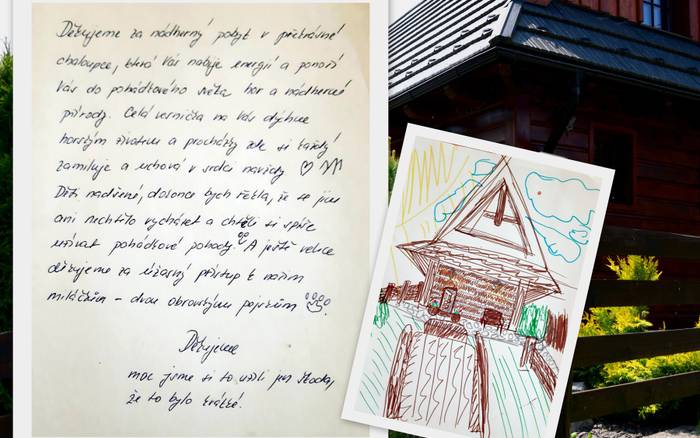 Děkujeme za nádherný pobyt v překrásné
chaloupce, která Vás nabije energií a ponoří
Vás do pohádkového světa hor a nádherné
přírody. Celá vesnička na Vás dýchne
horským životem a procházky zde si každý
zamiluje a uchová v srdci navždy
Děti nadšené, dokonce bych řekla, že se jim
ani nechtělo vycházet a chtěli si spíše
užívat pohádkové pohody. A ještě velice
děkujeme za úžasný přístup k našim
miláčkům – dvou obrovským pejskům
Děkujeme
moc jsme si to užili jen škoda,
že to bylo krátké.